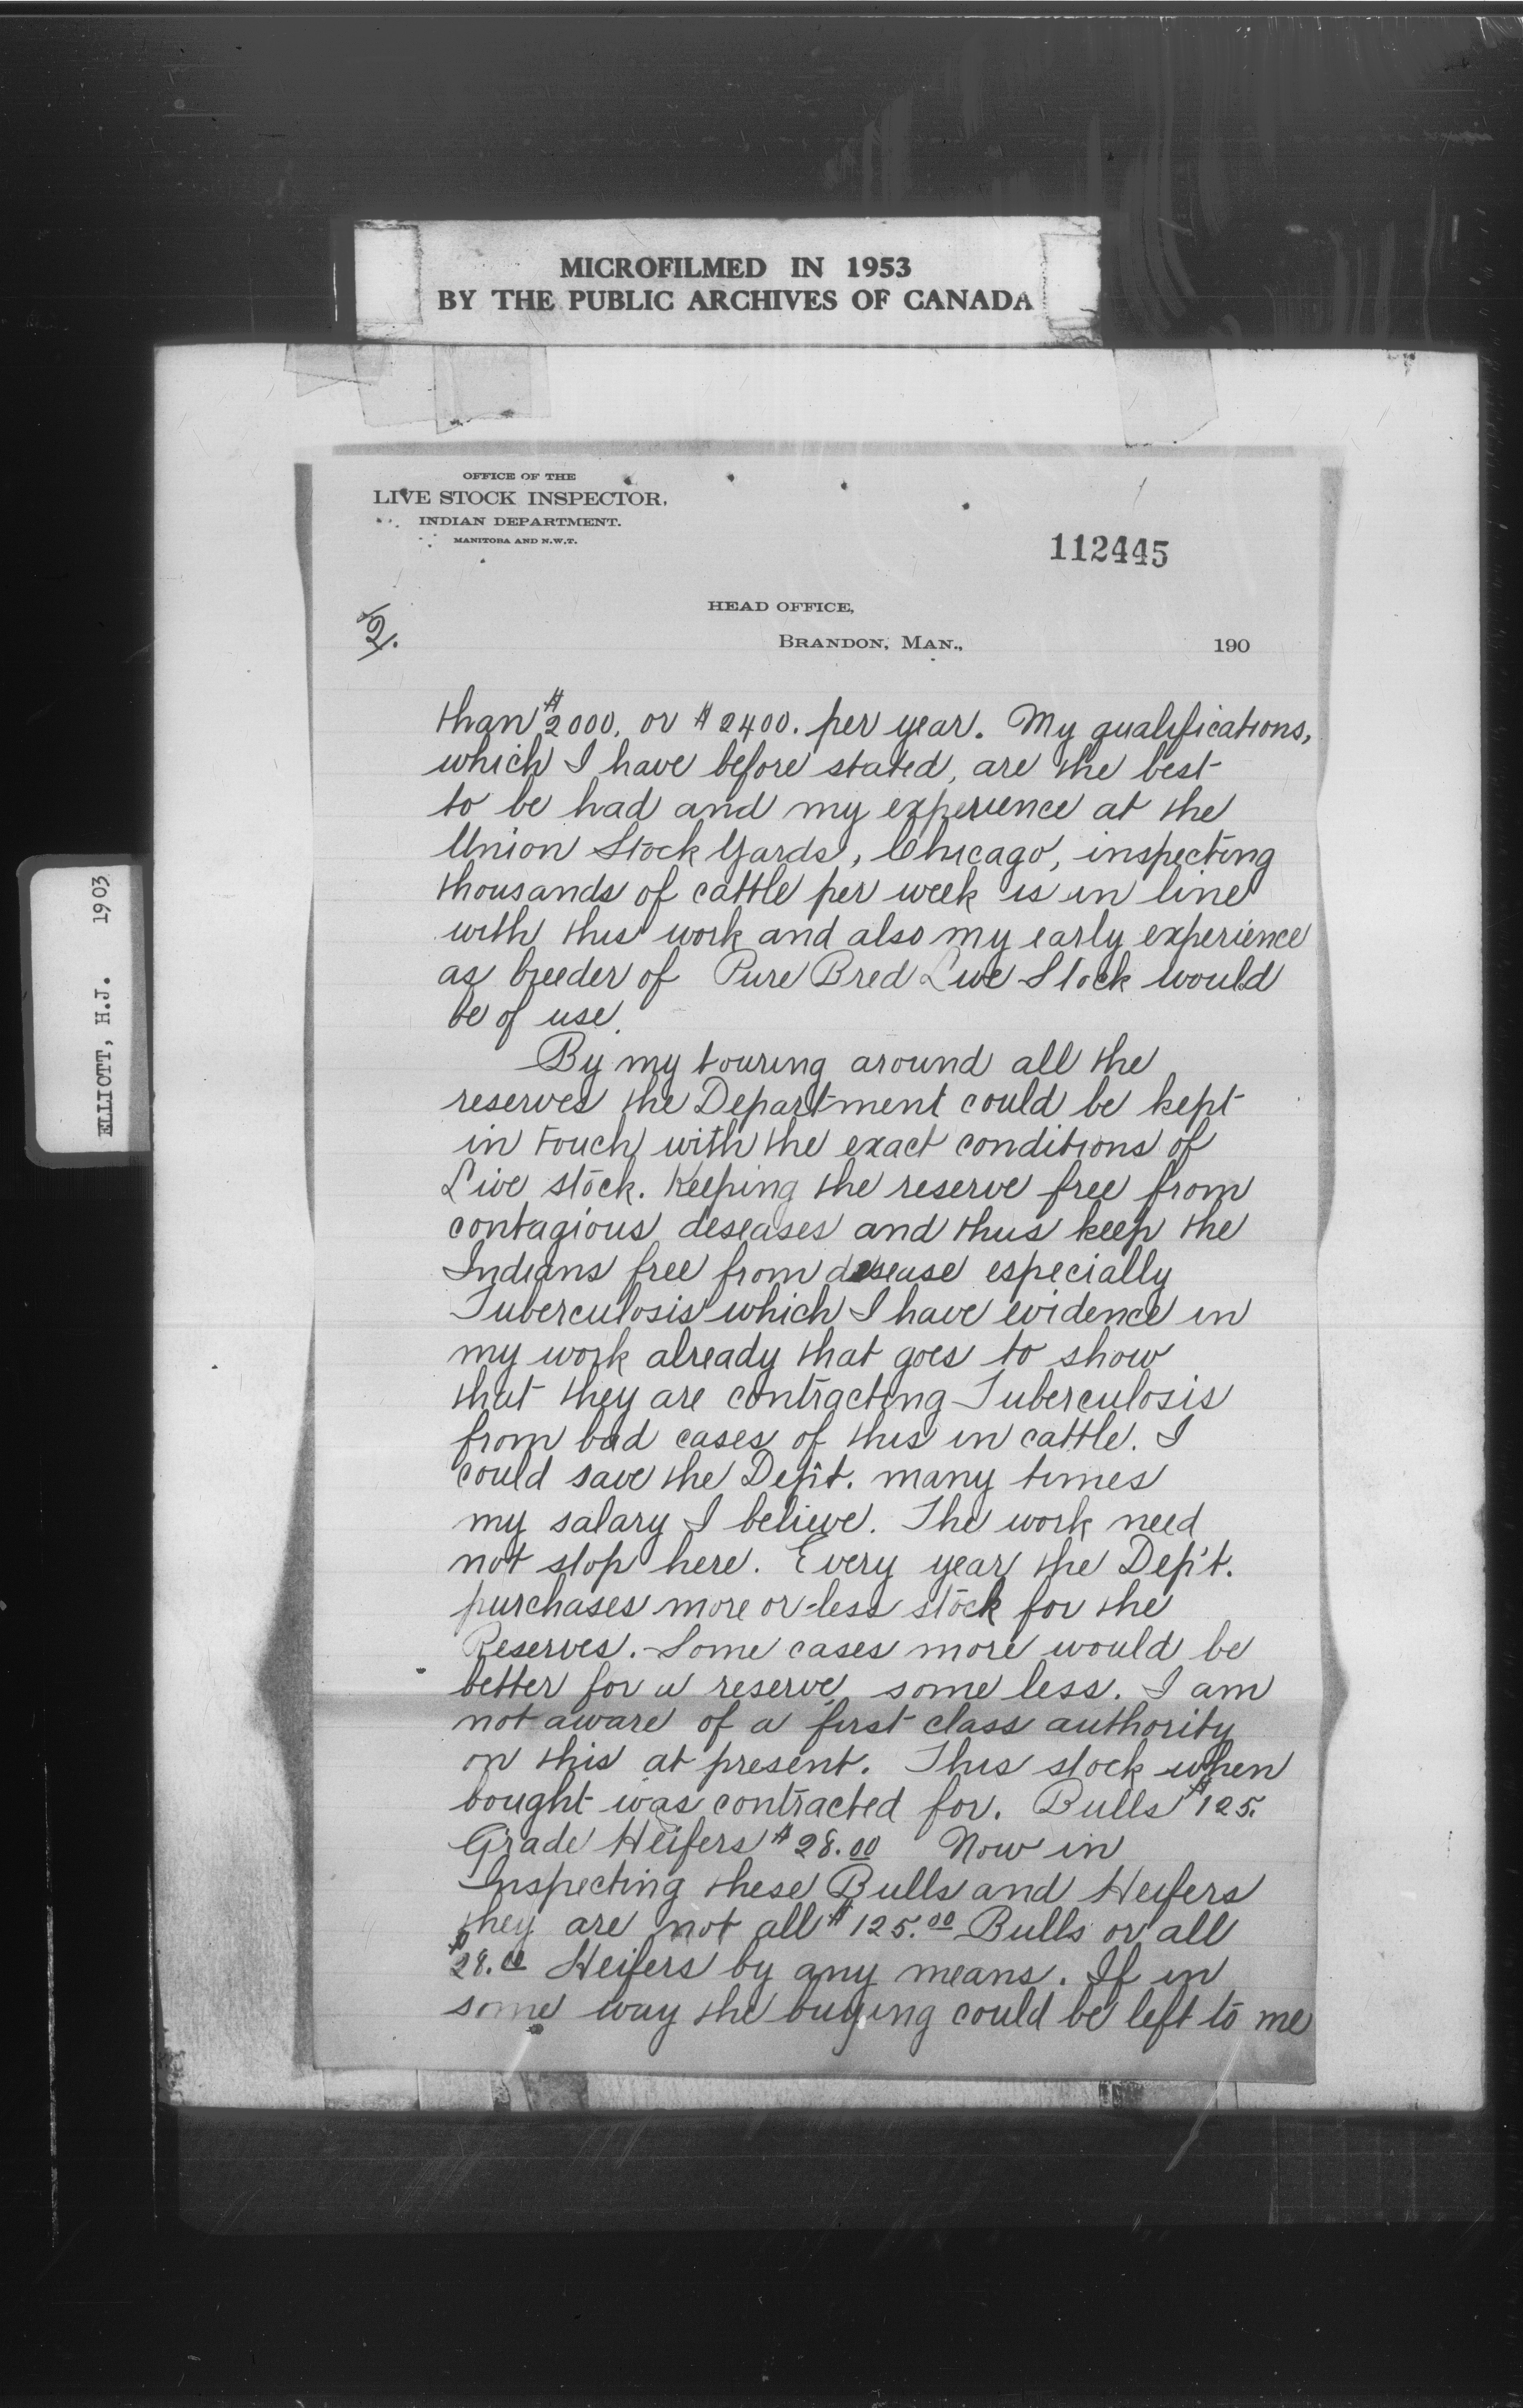 MICROFILMED IN 1953
BY THE PUBLIC ARCHIVES OF CANADA
ELLIOTT, H.J. 1903
OFFICE OF THE
LIVE STOCK INSPECTOR,
INDIAN DEPARTMENT.
MANITOBA AND N.W.T.
112445
HEAD OFFICE,
2.
BRANDON, MAN., 190
than $2000. or $2400. per year. My qualifications,
which I have before stated, are the best
to be had and my experience at the
Union Stock Yards, Chicago, inspecting
thousands of cattle per week is in line
with this work and also my early experience
as breeder of Pure Bred Live Stock would
be of use.
By my touring around all the
reserves the Department could be kept
in touch with the exact conditions of
Live stock. Keeping the reserve free from
contagious deseases and thus keep the
Indians free from desease especially
Tuberculosis which I have evidence in
my work already that goes to show
that they are contracting Tuberculosis
from bad cases of this in cattle. I
could save the Dep't. many times
my salary I believe. The work need
not stop here. Every year the Dep't.
purchases more or less stock for the
Reserves. Some cases more would be
better for a reserve some less. I am
not aware of a first class authority
on this at present. This stock when
bought was contracted for. Bulls $125.
Grade Heifers $28.00 Now in
Inspecting these Bulls and Heifers
they are not all $125.00 Bulls or all
$28.00 Heifers by any means. If in
some way the buying could be left to me